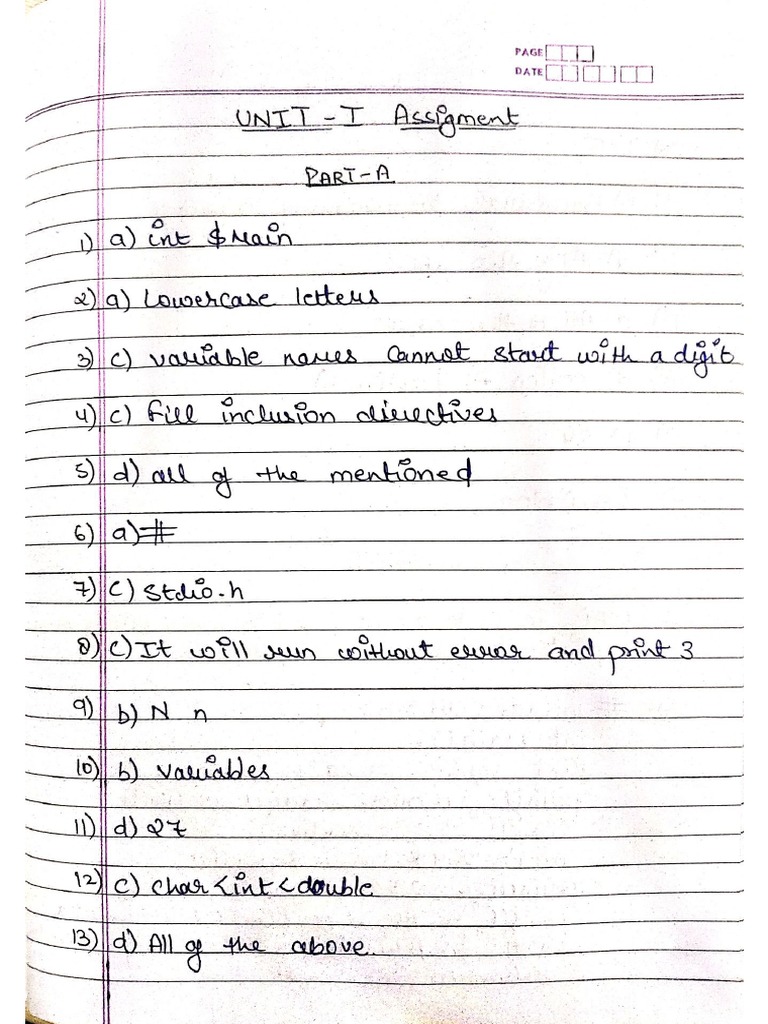 PAGE
DATE
UNIT-I Assigment
PART-A
1) a) int $Main
2) a) Lowercase letters
3) c) variable names cannot start with a digit
4) c) Fill inclusion directives
5) d) all of the mentioned
6) a) #
7) C) stdio.h
8) C) It will run without error and print 3
9) b) N n
10) b) variables
11) d) 27
12) c) char<int<double
13) d) All of the above.